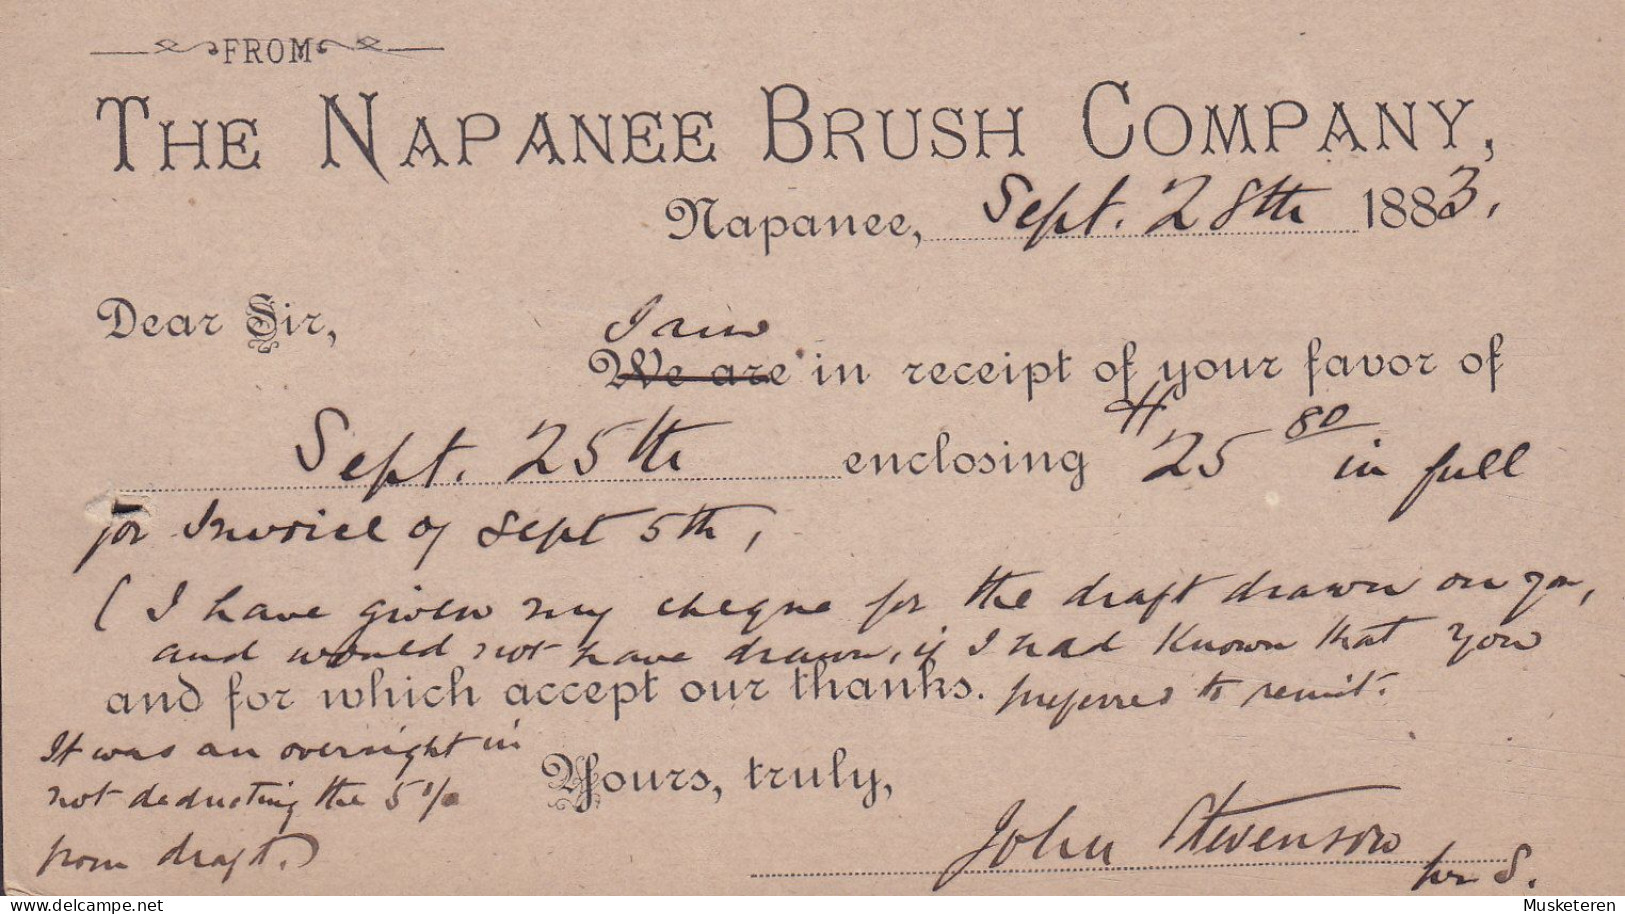 FROM
THE NAPANEE BRUSH COMPANY,
Napanee, Sept. 28th 1883.
Dear Sir,
I am
We are in receipt of your favor of
Sept. 25th enclosing $25 80 in full
for Invoice of Sept 5th,
(I have given my cheque for the draft drawn on you,
and would not have drawn, if I had known that you
and for which accept our thanks. preferred to remit.
It was an oversight in
not deducting the 5%
from draft.)
Yours, truly,
John Stevenson
per S.
www.delcampe.net
Musketeren